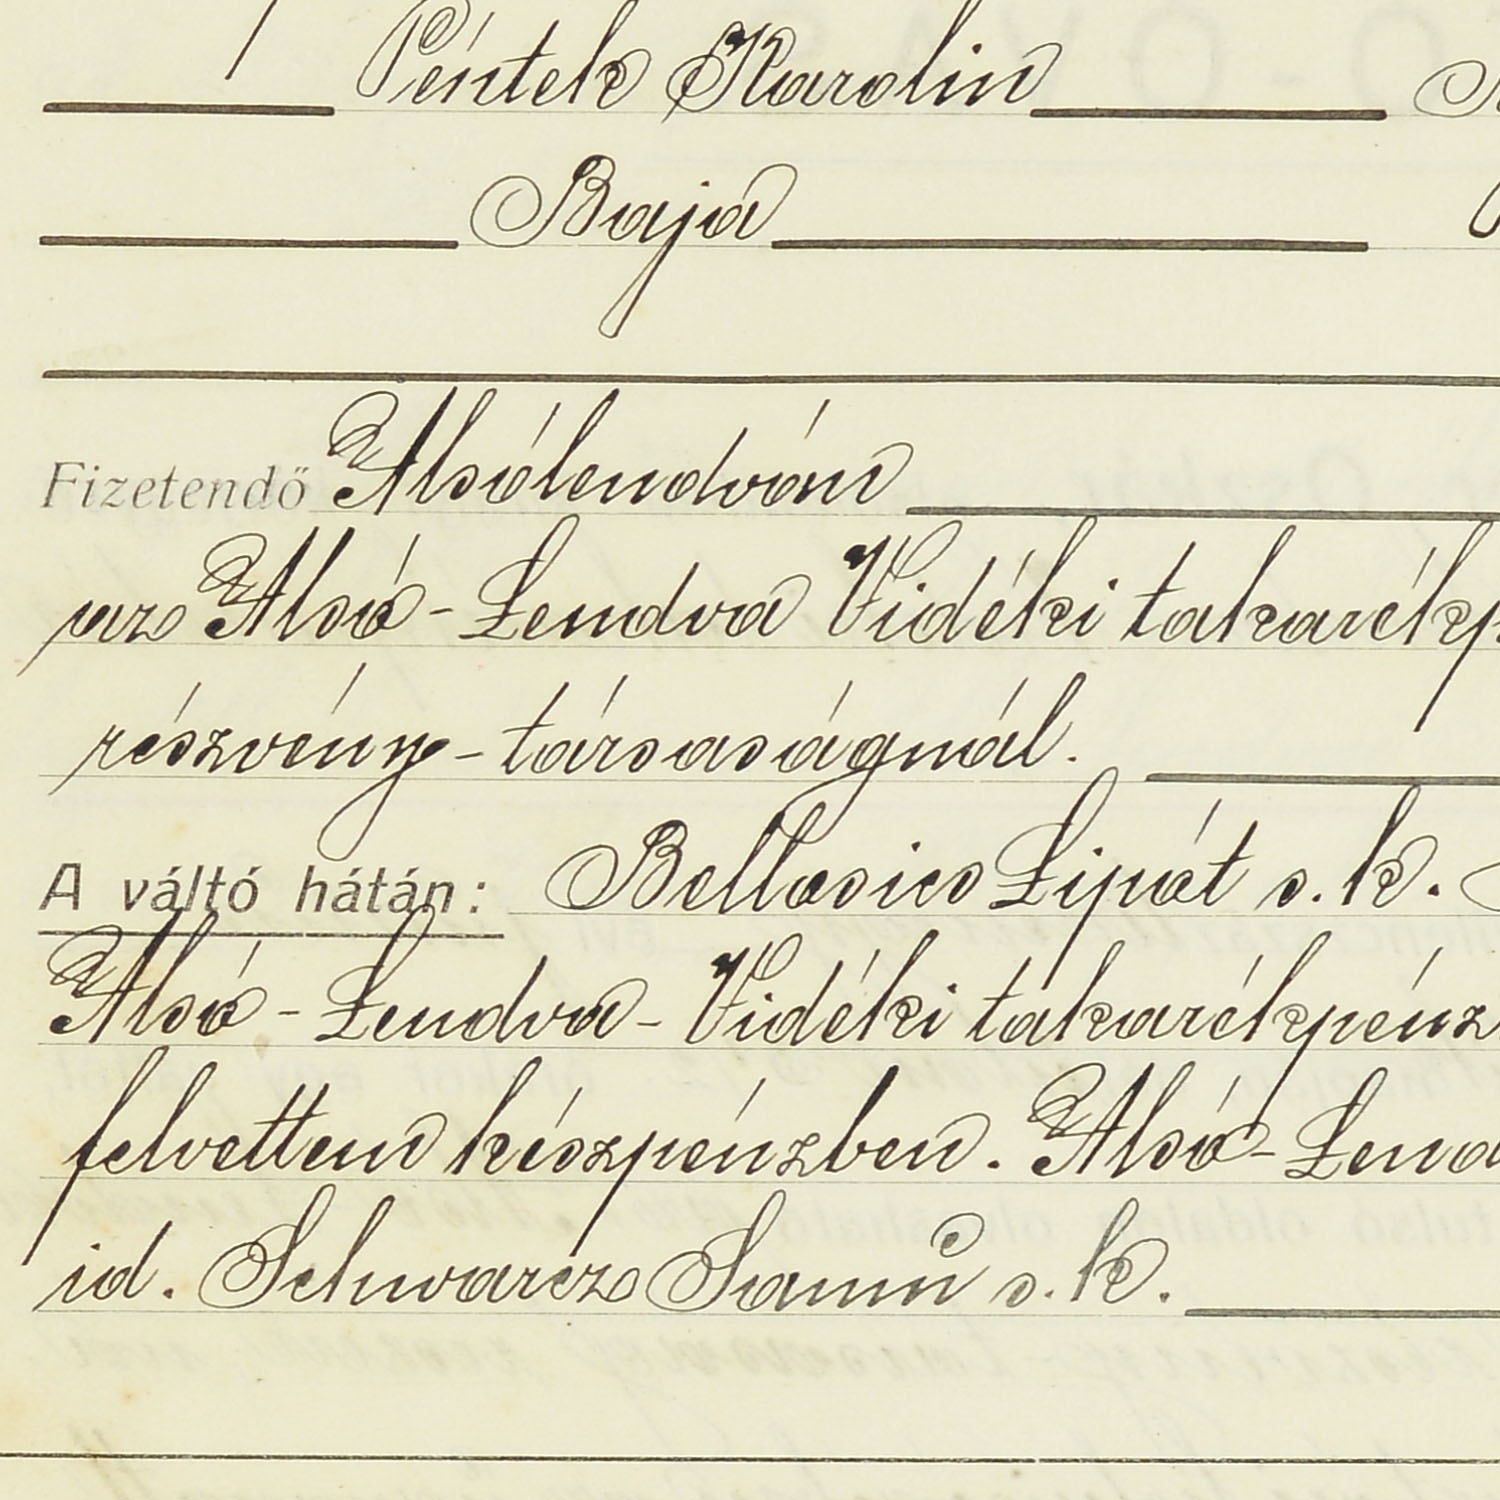 Péntek Karolin
Baja
Fizetendő Alsólendván
az Alsó-Lendva Vidéki takarékp
részvény-társaságnál.
A váltó hátán: Bellosics Lipót s.k.
Alsó-Lendva-Vidéki takarékpénz
felvettem készpénzben. Alsó-Lend
id. Schwarcz Samu s.k.